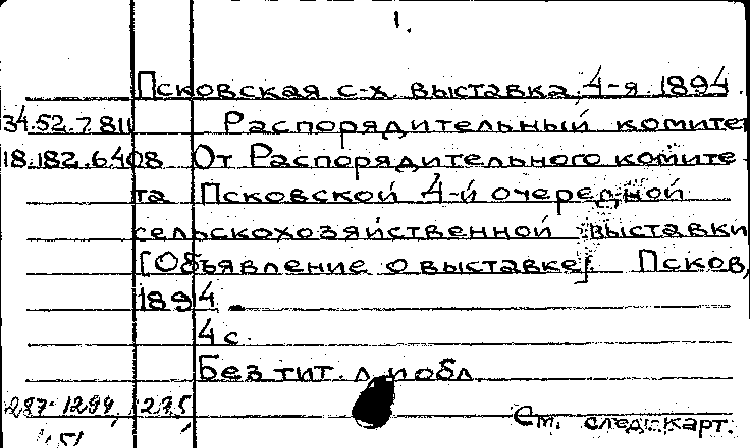 1.
Псковская с-х. выставка, 4-я. 1894.
34.52.7.811 Распорядительный комитет
18.182.6408 От Распорядительного комите-
та Псковской 4-й очередной
сельскохозяйственной выставки
[Объявление о выставке]. Псков,
1894.
4 с.
Без тит. л. и обл.
287-1294, 1295,
См. след. карт.